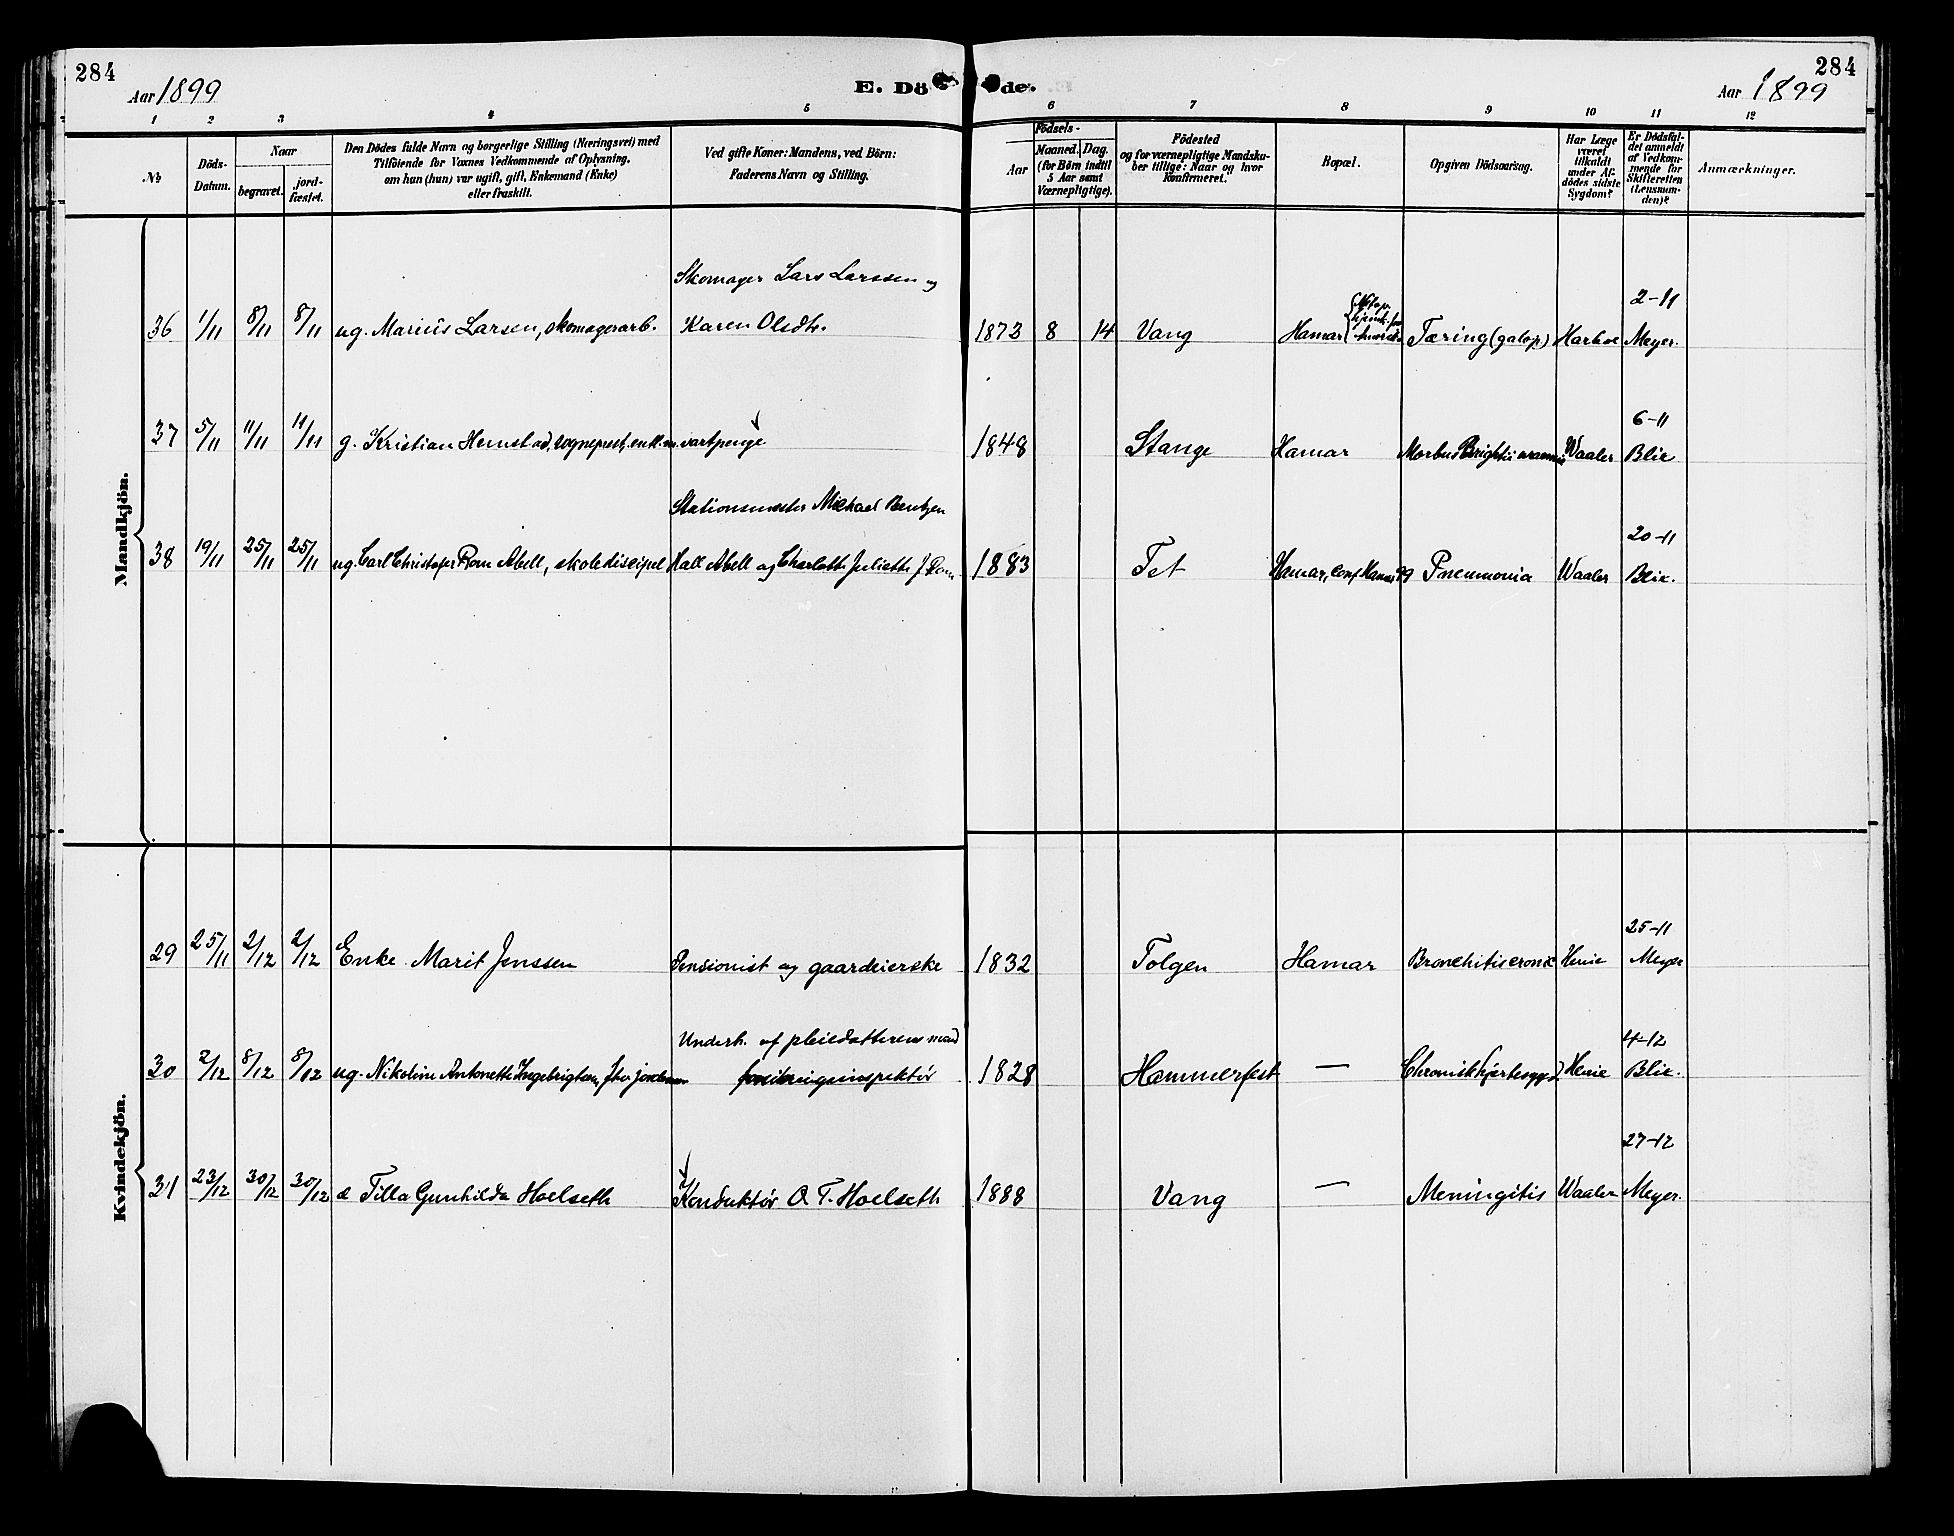 284
Aar 1899
E. Dö de.
284
Aar 1899
1 2 3 4 5 6 7 8 9 10 11 12
№
Döds-
Datum.
Naar
begravet.
jord-
fæstet.
Den Dödes fulde Navn og borgerlige Stilling (Næringsvei) med
Tilföiende for Voxnes Vedkommende af Oplysning,
om han (hun) var ugift, gift, Enkemand (Enke)
eller fraskilt.
Ved gifte Koner: Mandens, ved Börn:
Faderens Navn og Stilling.
Födsels-
Aar
Maaned.
Dag.
(for Börn indtil
5 Aar samt
Værnepligtige).
Födested
og for værnepligtige Mandska-
ber tillige: Naar og hvor
Konfirmeret.
Bopæl.
Opgiven Dödsaarsag.
Har Læge
været
tilkaldt
under Af-
dödes sidste
Sygdom?
Er Dödsfal-
det anmeldt
af Vedkom-
mende for
Skifteretten
(Lensman-
den)?
Anmærkninger.
Mandkjön.
Skomager Lars Larssen og
2-11
36 1/11 8/11 8/11 ug. Marius Larsen, skomagerarb. Karen Olsdtr. 1873 8 14 Vang Hamar Tæring (galop) Harboe Meyer.
6-11
37 5/11 11/11 11/11 g. Kristian Hernstad, sogneprest, vartpenge 1848 Stange Hamar Morbus Brightii Waaler Blix
Stationsmester Michael Bentzen
20-11
38 19/11 25/11 25/11 ug. Carl Christofer Rom Abell, skolediscipel Hall Abell og Charlotte Juliette J. Rom 1883 Fet Hamar, conf Hamar 99 Pneumonia Waaler Blix.
Kvindekjön.
25-11
29 25/11 2/12 2/12 Enke Marit Jenssen Pensionist og gaardeierske 1832 Tolgen Hamar Bronchitis cronic Heuie Meyer
Underh. af pleiedatterens mand
4-12
30 2/12 8/12 8/12 ug. Nikoline Antonette Ingebrigtsen, 1828 Hammerfest — Chronisk hjertesygd. Heuie Blix.
27-12
31 23/12 30/12 30/12 d Tilla Gunhilda Hoelseth Konduktör O. T. Hoelseth 1888 Vang — Meningitis Waaler Meyer.